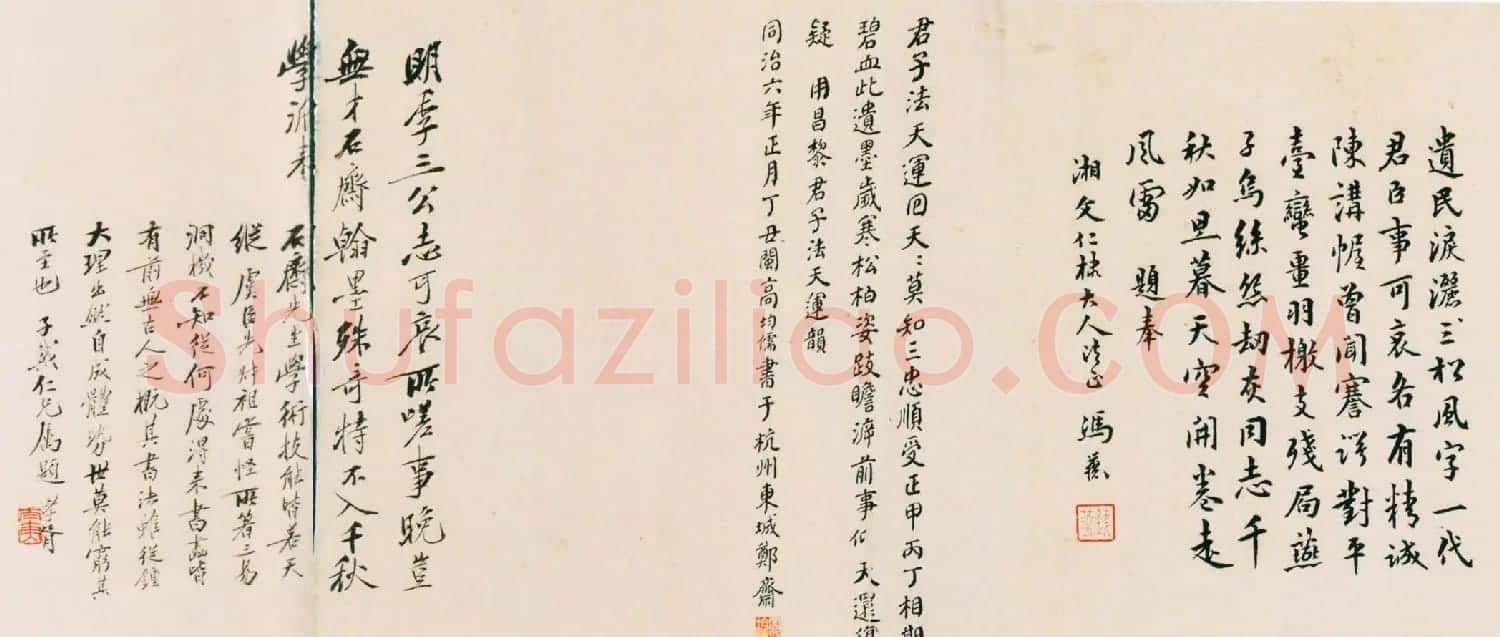 遺民淚灑三松風字一代
君臣事可哀各有精誠
陳講幄曾聞謇諤對平
臺蠻重羽檄支殘局燕
子烏絲怨劫灰同志千
秋如旦暮天空開卷走
風雷 題奉
湘文仁棣大人法正 馮
君子法天運回天〻莫知三忠順受正甲丙丁相期
碧血此遺墨歲寒松柏姿跂瞻滓前事似天邊
疑 用昌黎君子法天運韻
同治六年正月丁丑閩高均儒書于杭州東城鄭齋
明季三公志可哀所嗟事晚豈
無才石齋翰墨殊奇特不入千秋
學派來
石齋先生學術技能皆若天
縱虞臣先叔祖嘗怪所著三易
洞機不知從何處得來書畫皆
有前無古人之概其書法雖從鍾
大理出然自成體勢世莫能窮其
所至也 子 仁兄屬題
Shufaziliao.COM